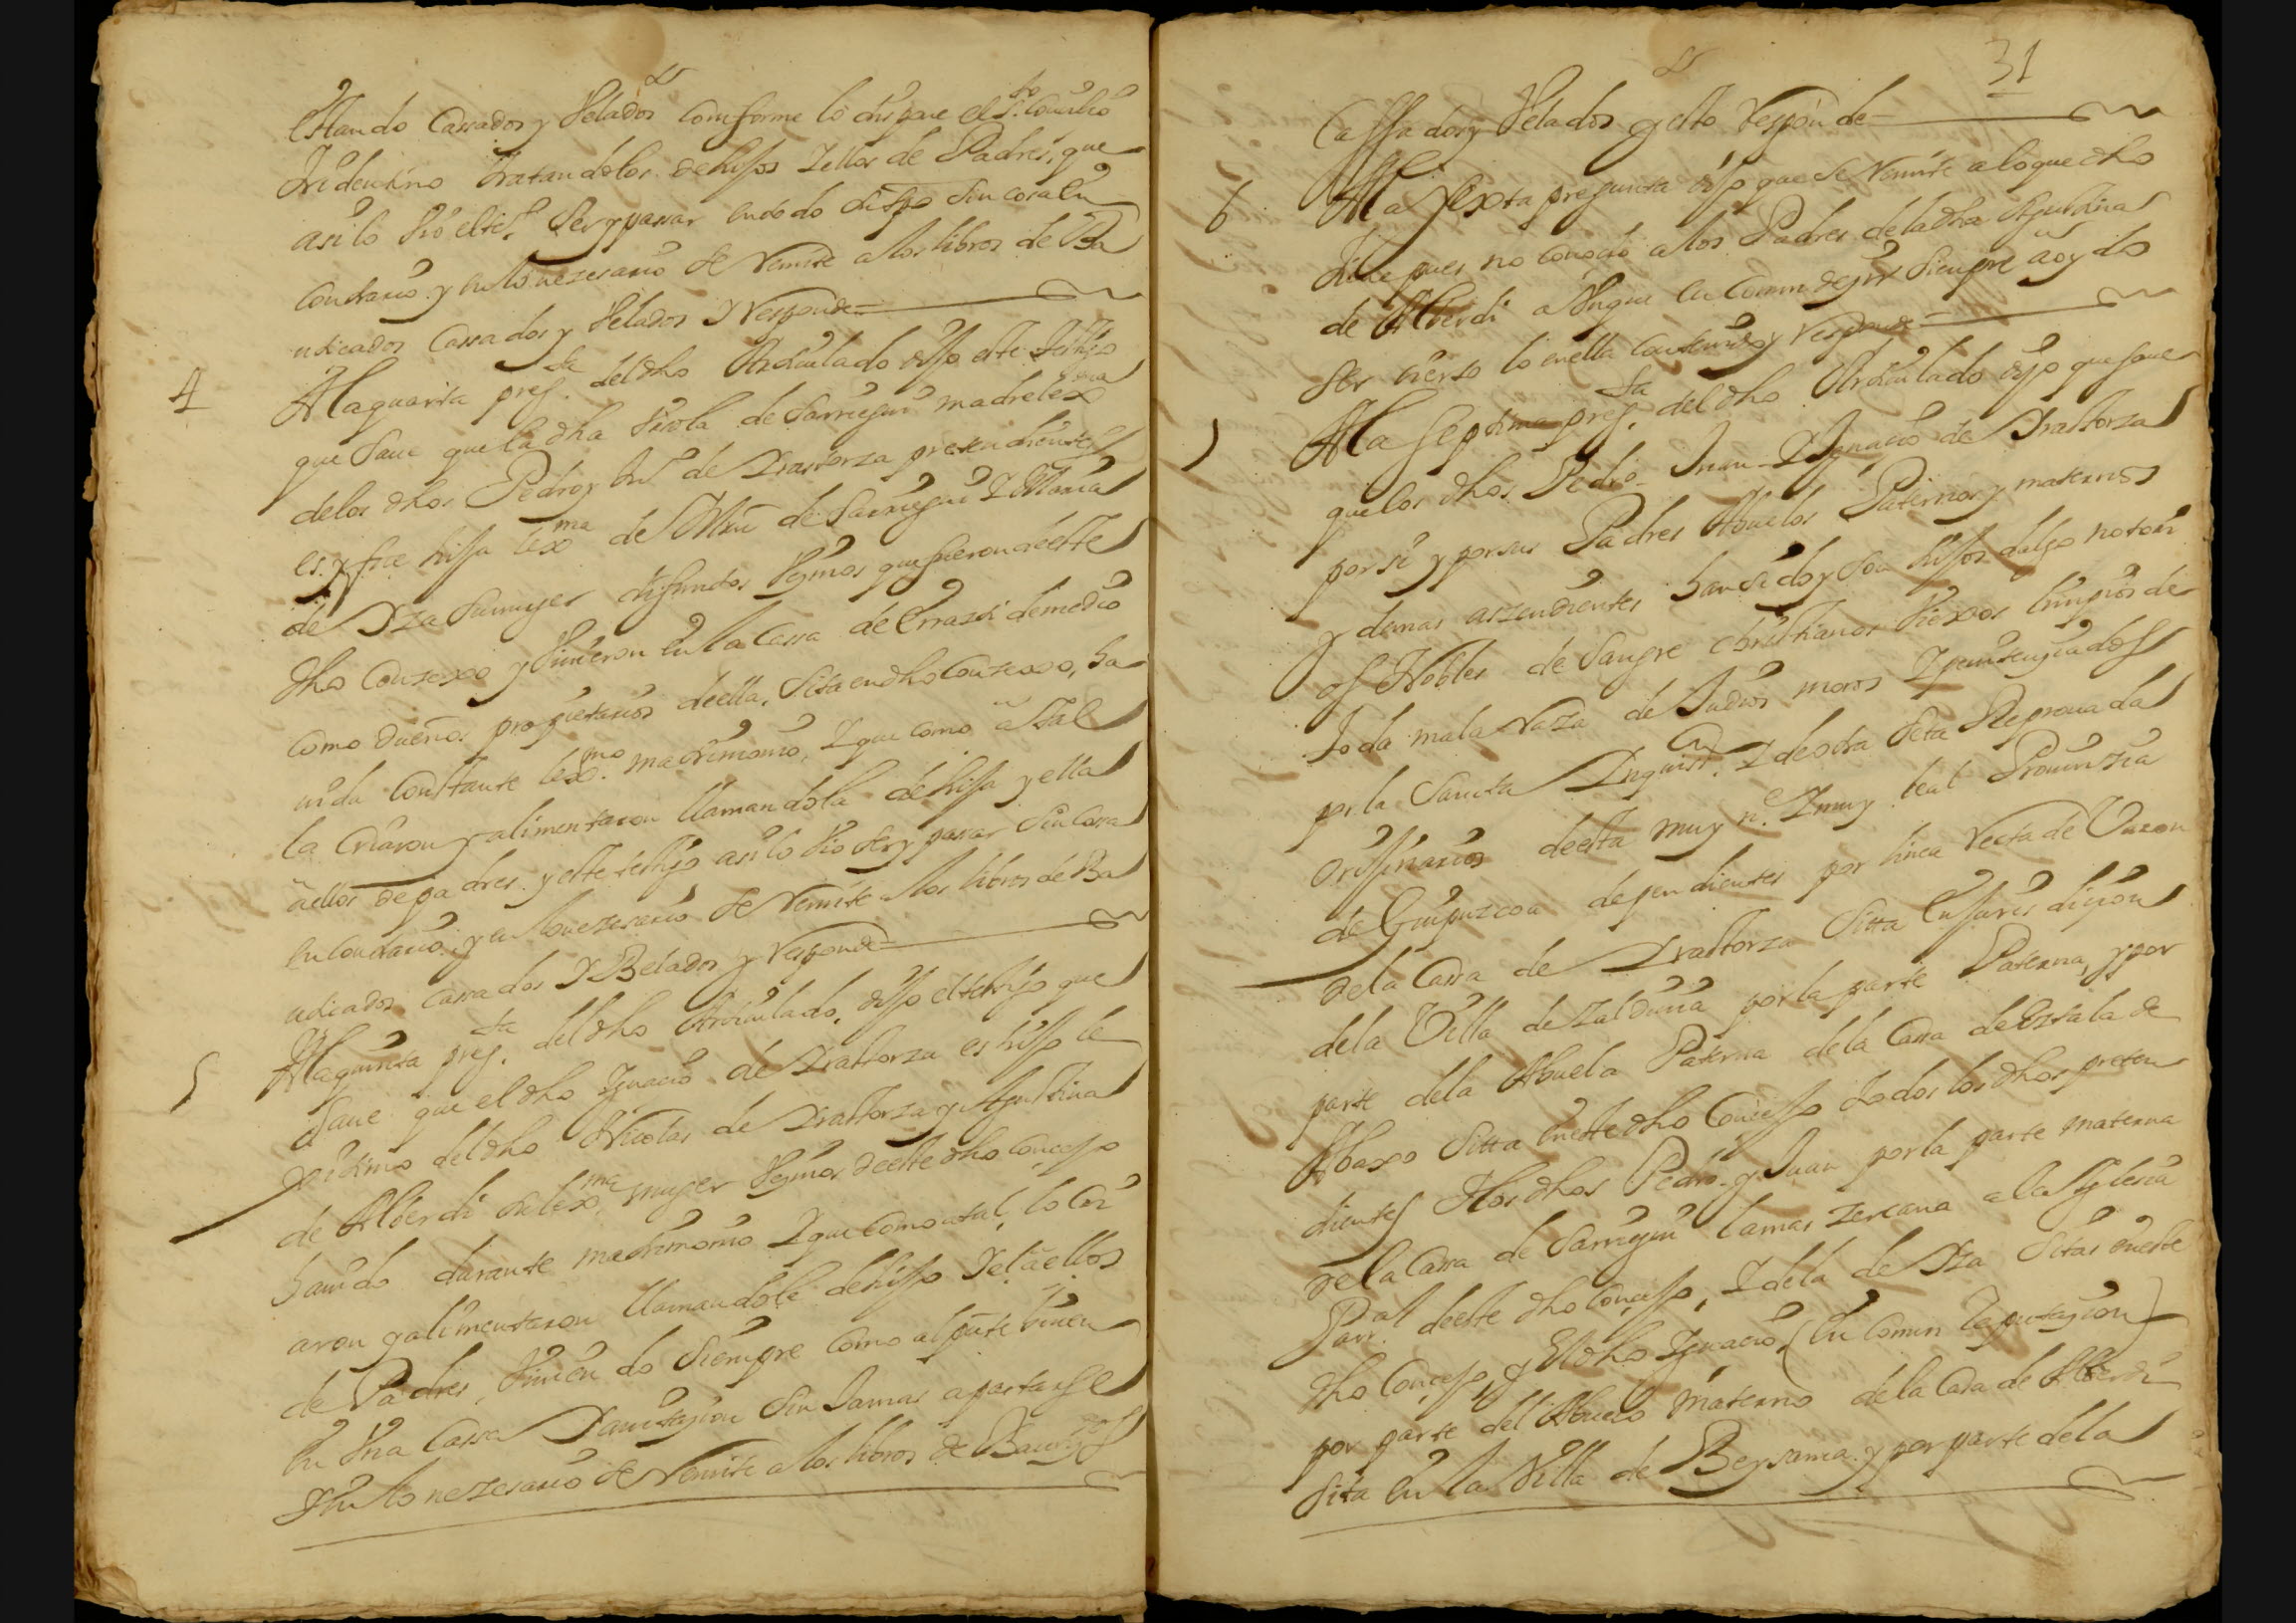 estando Cassados y Velados Comforme lo dispone el S.to Concilio
Tridentino tratandolos de hijos Y ellos de Padres, que
asi lo vio el tt.o Ser y passar en todo dicho tiempo Sin cosa en
Contrario. y en lo nezesario Se Remite a los libros de Ba
utizados Cassados y Velados Y Responde =
4 A la quarta preg.ta del dho Articulado dijo este Testigo
que Saue que la dha de Sarriegui madre lexma
de los dhos Pedro y de Irastorza pretendientes
es y fue hija lexma de de Sarriegui Y Maria
de Yza Su muger difuntos Vezinos que fueron de este
dho Conzexo y Viuieron en la Cassa de Errazti de medio
Como dueños propietarios de ella, Sita en dho Conzexo, ha
uida Constante lexmo matrimonio, Y que como a tal
la Criaron y alimentaron llamandola de hija y ella
a ellos de padres. y este testigo asi lo vio Ser y pasar Sin Cosa
en Contrario, y en lo nezesario Se Remite a los libros de Ba
utizados Cassados Y Belados y Responde =
5 A la quinta preg.ta del dho Articulado, dijo el testigo que
Saue que el dho Ygnacio de Irastorza es hijo le
xitimo del dho Nicolas de Irastorza y Agustina
de Alberdi Su lexma muger Vezinos de este dho Concejo
hauido durante matrimonio Y que Como a tal, lo Cri
aron y alimentaron llamandole de hijo Y el a ellos
de Padres, Viuiendo Siempre Como al pnte viuen
en Vna Cassa Y auitazion Sin Jamas apartarse
Y en lo nezesario Se Remite a los libros de Bautizdos
31
Cassados y Velados y esto Responde =
6 A la Sexta pregunta dijo que Se Remite a lo que dho
tiene pues no Conocio a los Padres de la dha Agustina
de Alberdi aVnque en Comun dezir Siempre a oydo
Ser cierto lo en ella Contenido y Responde =
7 A la Septima preg.ta del dho Articulado dijo que Saue
que los dhos Pedro - Juan - Y Ygnacio de Irastorza
por si y por sus Padres Abuelos Paternos y maternos
y demas aszendientes han sido y Son hijos dalgo notori
os Nobles de Sangre christianos Viexos limpios de
toda mala Raza de Judios moros Y penitenziados
por la Sancta Inquisn. Y de otra Seta Reprouada
Orijinarios de esta muy n.e Y muy leal Prouinzia
de Guipuzcoa dependientes por linea Recta de Varon
de la Cassa de Irastorza Sitta en Jurisdicion
de la Villa de Zalduuia por la parte Paterna, y por
parte de la Abuela Paterna de la Cassa de Estala de
Abaxo Sitta en este dho Concejo todos los dhos preten
dientes Y los dhos Pedro - y Juan por la parte materna
de la Cassa de Sarriegui la mas zercana a la Yglesia
Parr.al de este dho Concejo, Y de la de Yza Sitas en este
dho Concejo, y El dho Ygnacio, (en Comun Reputazion)
por parte del Abuelo Materno de la Casa de Alberdi
Sita en la Villa de Beysama. y por parte de la